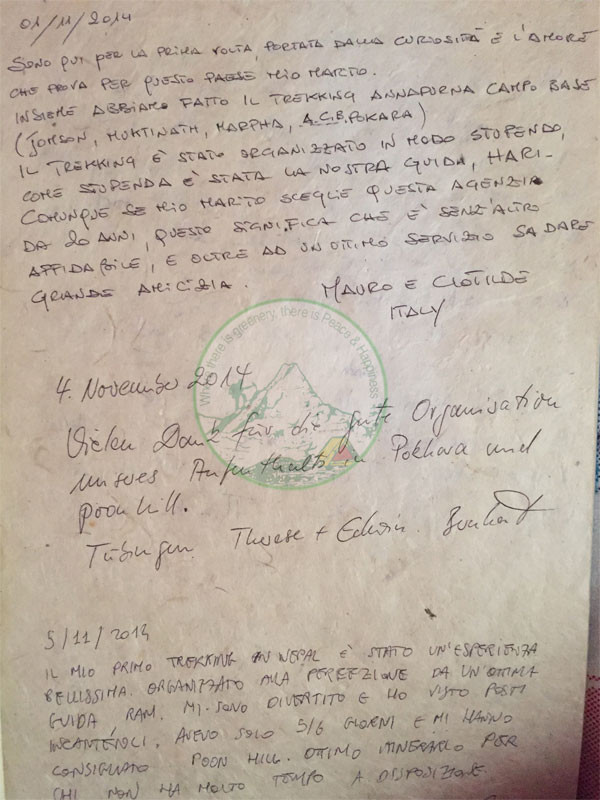 01/11/2014
SONO QUI PER LA PRIMA VOLTA, PORTATA DALLA CURIOSITÀ E L'AMORE
CHE PROVA PER QUESTO PAESE MIO MARITO.
INSIEME ABBIAMO FATTO IL TREKKING ANNAPURNA CAMPO BASE
(JOMSON, MUKTINATH, MARPHA, A.C.B. POKARA)
IL TREKKING È STATO ORGANIZZATO IN MODO STUPENDO,
COME STUPENDA È STATA LA NOSTRA GUIDA, HARI-
COMUNQUE SE MIO MARITO SCEGLIE QUESTA AGENZIA
DA 20 ANNI, QUESTO SIGNIFICA CHE È SENZ'ALTRO
AFFIDABILE, E OLTRE AD UN OTTIMO SERVIZIO SA DARE
GRANDE AMICIZIA.
MAURO E CLOTILDE
ITALY
Where there is gretinery, there is Peace & Happiness
4. November 2014
Vielen Dank für die gute Organisation
unseres Aufenthalts in Pokhara und
poonhill.
Tübingen Therese + Edwin
5/11/2014
IL MIO PRIMO TREKKING IN NEPAL È STATO UN'ESPERIENZA
BELLISSIMA. ORGANIZZATO ALLA PERFEZIONE DA UN'OTTIMA
GUIDA, RAM. MI SONO DIVERTITO E HO VISTO POSTI
INCANTEVOLI. AVEVO SOLO 5/6 GIORNI E MI HANNO
CONSIGLIATO POON HILL. OTTIMO ITINERARIO PER
CHI NON HA MOLTO TEMPO A DISPOSIZIONE